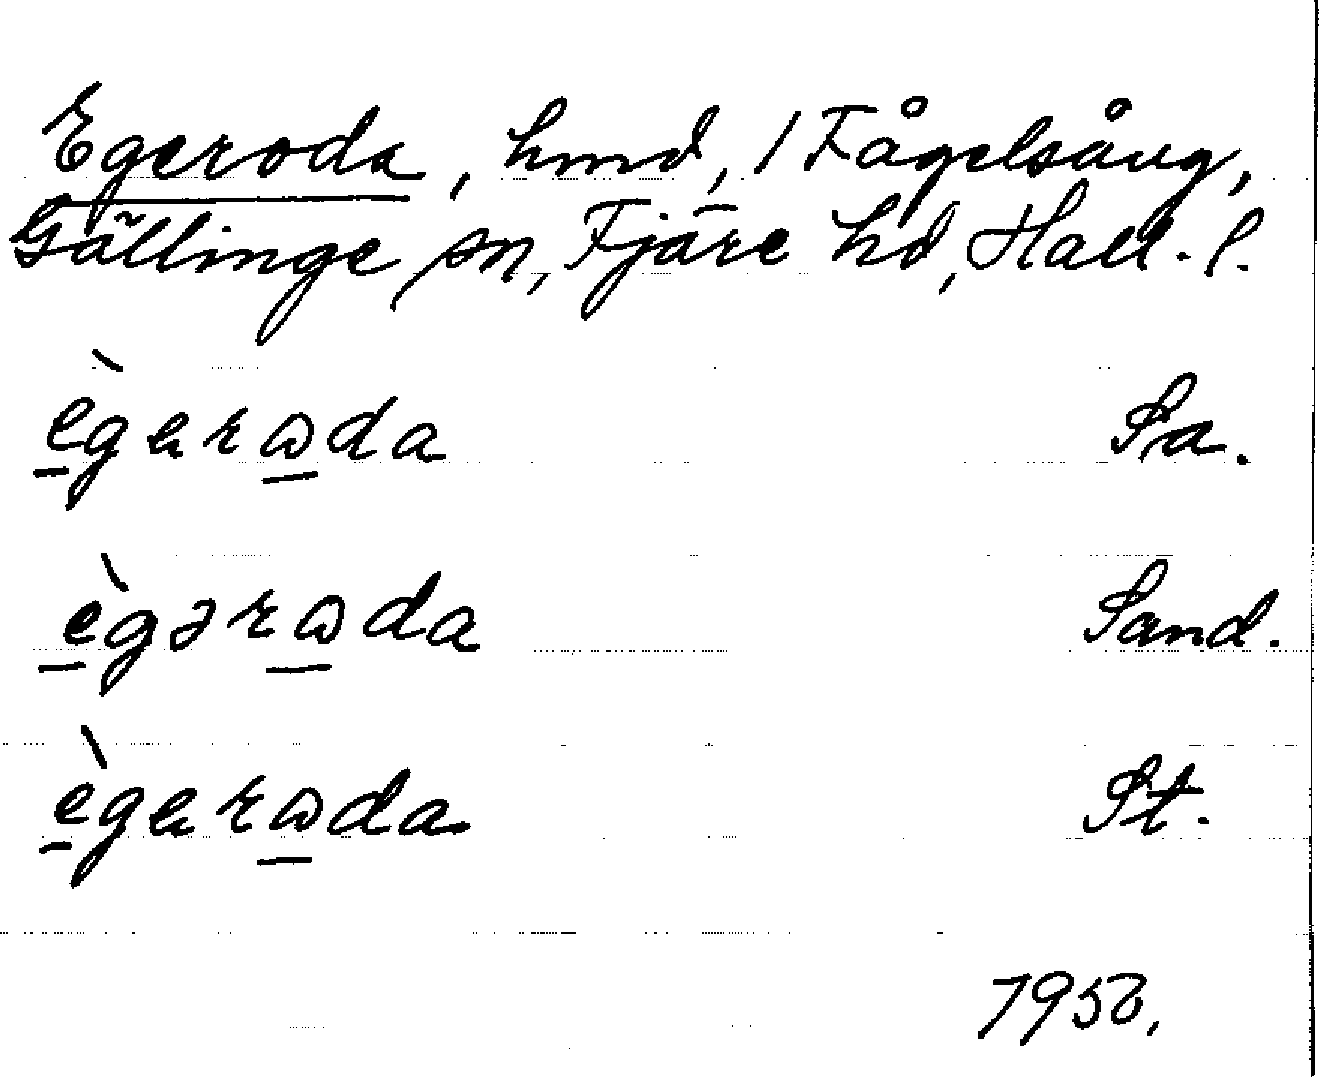 Egeroda, hmd, 1 Fågelsång,
Gällinge sn, Fjäre hd, Hall. l.
ègeroda Sa.
ègəroda Sand.
ègeroda St.